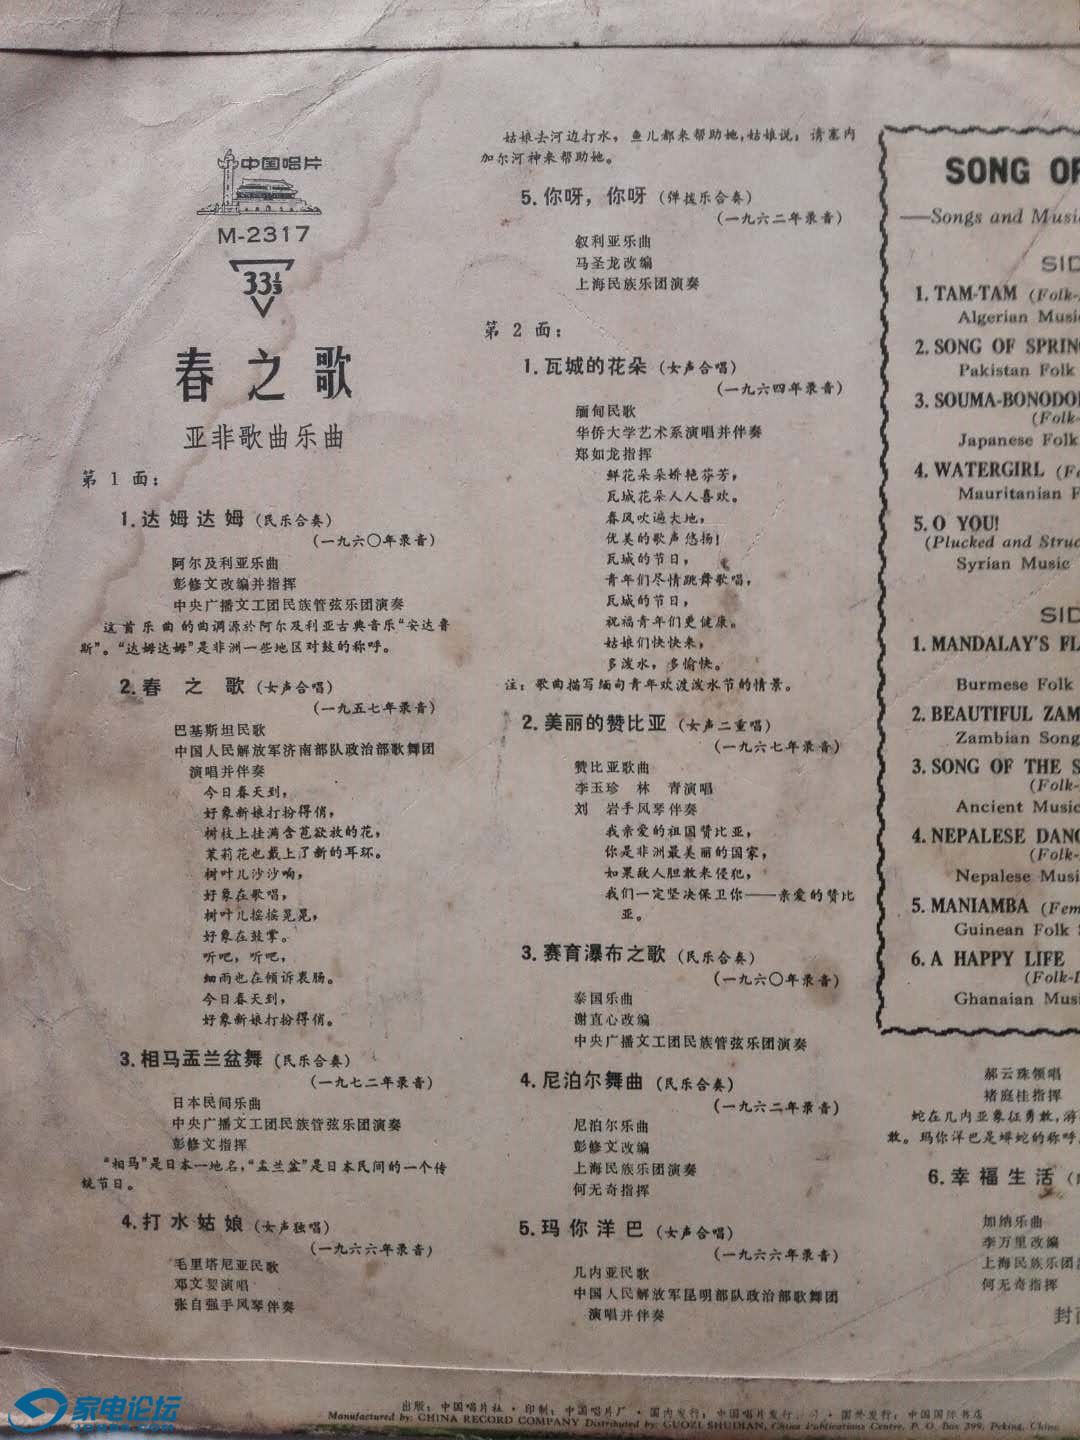 中国唱片
M-2317
33⅓
春之歌
亚非歌曲乐曲
第 1 面：
1. 达姆达姆（民乐合奏）
（一九六〇年录音）
阿尔及利亚乐曲
彭修文改编并指挥
中央广播文工团民族管弦乐团演奏
这首乐曲的曲调源於阿尔及利亚古典音乐“安达鲁
斯”。“达姆达姆”是非洲一些地区对鼓的称呼。
2. 春之歌（女声合唱）
（一九五七年录音）
巴基斯坦民歌
中国人民解放军济南部队政治部歌舞团
演唱并伴奏
今日春天到，
好象新娘打扮得俏，
树枝上挂满含苞欲放的花，
茉莉花也戴上了新的耳环。
树叶儿沙沙响，
好象在歌唱，
树叶儿摇摇晃晃，
好象在鼓掌。
听吧，听吧，
细雨也在倾诉衷肠。
今日春天到，
好象新娘打扮得俏。
3. 相马盂兰盆舞（民乐合奏）
（一九七二年录音）
日本民间乐曲
中央广播文工团民族管弦乐团演奏
彭修文指挥
“相马”是日本一地名，“盂兰盆”是日本民间的一个传
统节日。
4. 打水姑娘（女声独唱）
（一九六六年录音）
毛里塔尼亚民歌
邓文演唱
张自强手风琴伴奏
姑娘去河边打水，鱼儿都来帮助她，姑娘说：请塞内
加尔河神来帮助她。
5. 你呀，你呀（弹拨乐合奏）
（一九六二年录音）
叙利亚乐曲
马圣龙改编
上海民族乐团演奏
第 2 面：
1. 瓦城的花朵（女声合唱）
（一九六四年录音）
缅甸民歌
华侨大学艺术系演唱并伴奏
郑如龙指挥
鲜花朵朵娇艳芬芳，
瓦城花朵人人喜欢。
春风吹遍大地，
优美的歌声悠扬！
瓦城的节日，
青年们尽情跳舞歌唱，
瓦城的节日，
祝福青年们更健康。
姑娘们快快来，
多泼水，多愉快。
注：歌曲描写缅甸青年欢渡泼水节的情景。
2. 美丽的赞比亚（女声二重唱）
（一九六七年录音）
赞比亚歌曲
李玉珍 林 青演唱
刘 岩手风琴伴奏
我亲爱的祖国赞比亚，
你是非洲最美丽的国家，
如果敌人胆敢来侵犯，
我们一定坚决保卫你——亲爱的赞比
亚。
3. 赛育瀑布之歌（民乐合奏）
（一九六〇年录音）
泰国乐曲
谢直心改编
中央广播文工团民族管弦乐团演奏
4. 尼泊尔舞曲（民乐合奏）
（一九六二年录音）
尼泊尔乐曲
彭修文改编
上海民族乐团演奏
何无奇指挥
5. 玛你洋巴（女声合唱）
（一九六六年录音）
几内亚民歌
中国人民解放军昆明部队政治部歌舞团
演唱并伴奏
SONG OF
——Songs and Music
SID
1. TAM-TAM (Folk-
Algerian Music
2. SONG OF SPRIN
Pakistan Folk
3. SOUMA-BONODO
(Folk-
Japanese Folk
4. WATERGIRL (Fe
Mauritanian F
5. O YOU!
(Plucked and Struc
Syrian Music
SID
1. MANDALAY'S FL
Burmese Folk
2. BEAUTIFUL ZAM
Zambian Song
3. SONG OF THE S
(Folk-
Ancient Music
4. NEPALESE DANC
(Folk-
Nepalese Musi
5. MANIAMBA (Fem
Guinean Folk S
6. A HAPPY LIFE
(Folk-I
Ghanaian Musi
郝云珠领唱
褚庭桂指挥
蛇在几内亚象征勇敢，游
敢。玛你洋巴是蟒蛇的称呼
6. 幸福生活
加纳乐曲
李万里改编
上海民族乐团
何无奇指挥
封
出版：中国唱片社·印制：中国唱片厂·国内发行：中国唱片发行公司·国外发行：中国国际书店
Manufactured by: CHINA RECORD COMPANY Distributed by: GUOZI SHUDIAN, China Publications Centre, P. O. Box 399, Peking, China
家电论坛